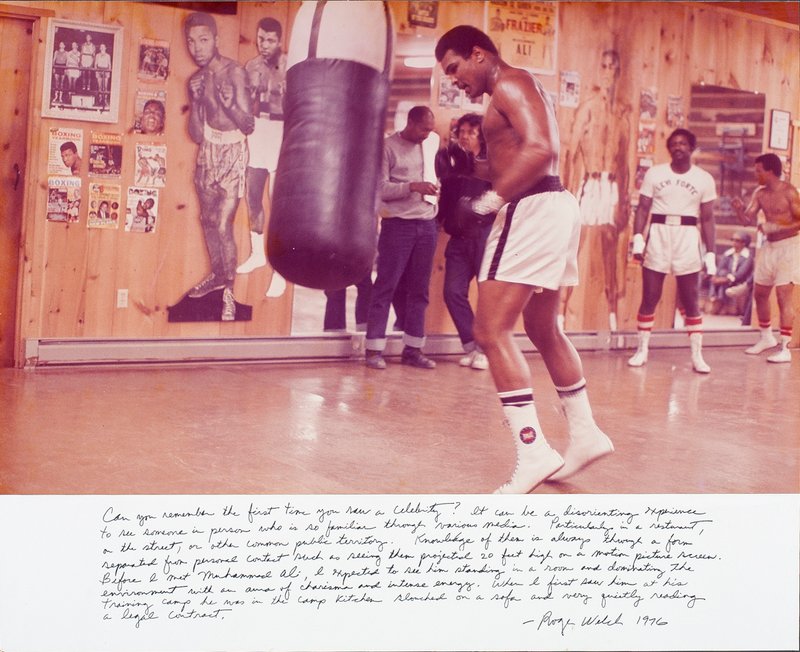 FRAZIER
ALI
BOXING
BOXING
NEW FORTE
Can you remember the first time you saw a celebrity? It can be a disorienting experience
to see someone in person who is so familiar through various media. Particularly in a resturant,
on the street, or other common public territory. Knowledge of them is always through a form
separated from personal contact such as seeing them projected 20 feet high on a motion picture screen.
Before I met Muhammad Ali, I expected to see him standing in a room and dominating the
environment with an aura of charisma and intense energy. When I first saw him at his
training camp he was in the camp kitchen slouched on a sofa and very quietly reading
a legal contract.
— Roger Welch 1976